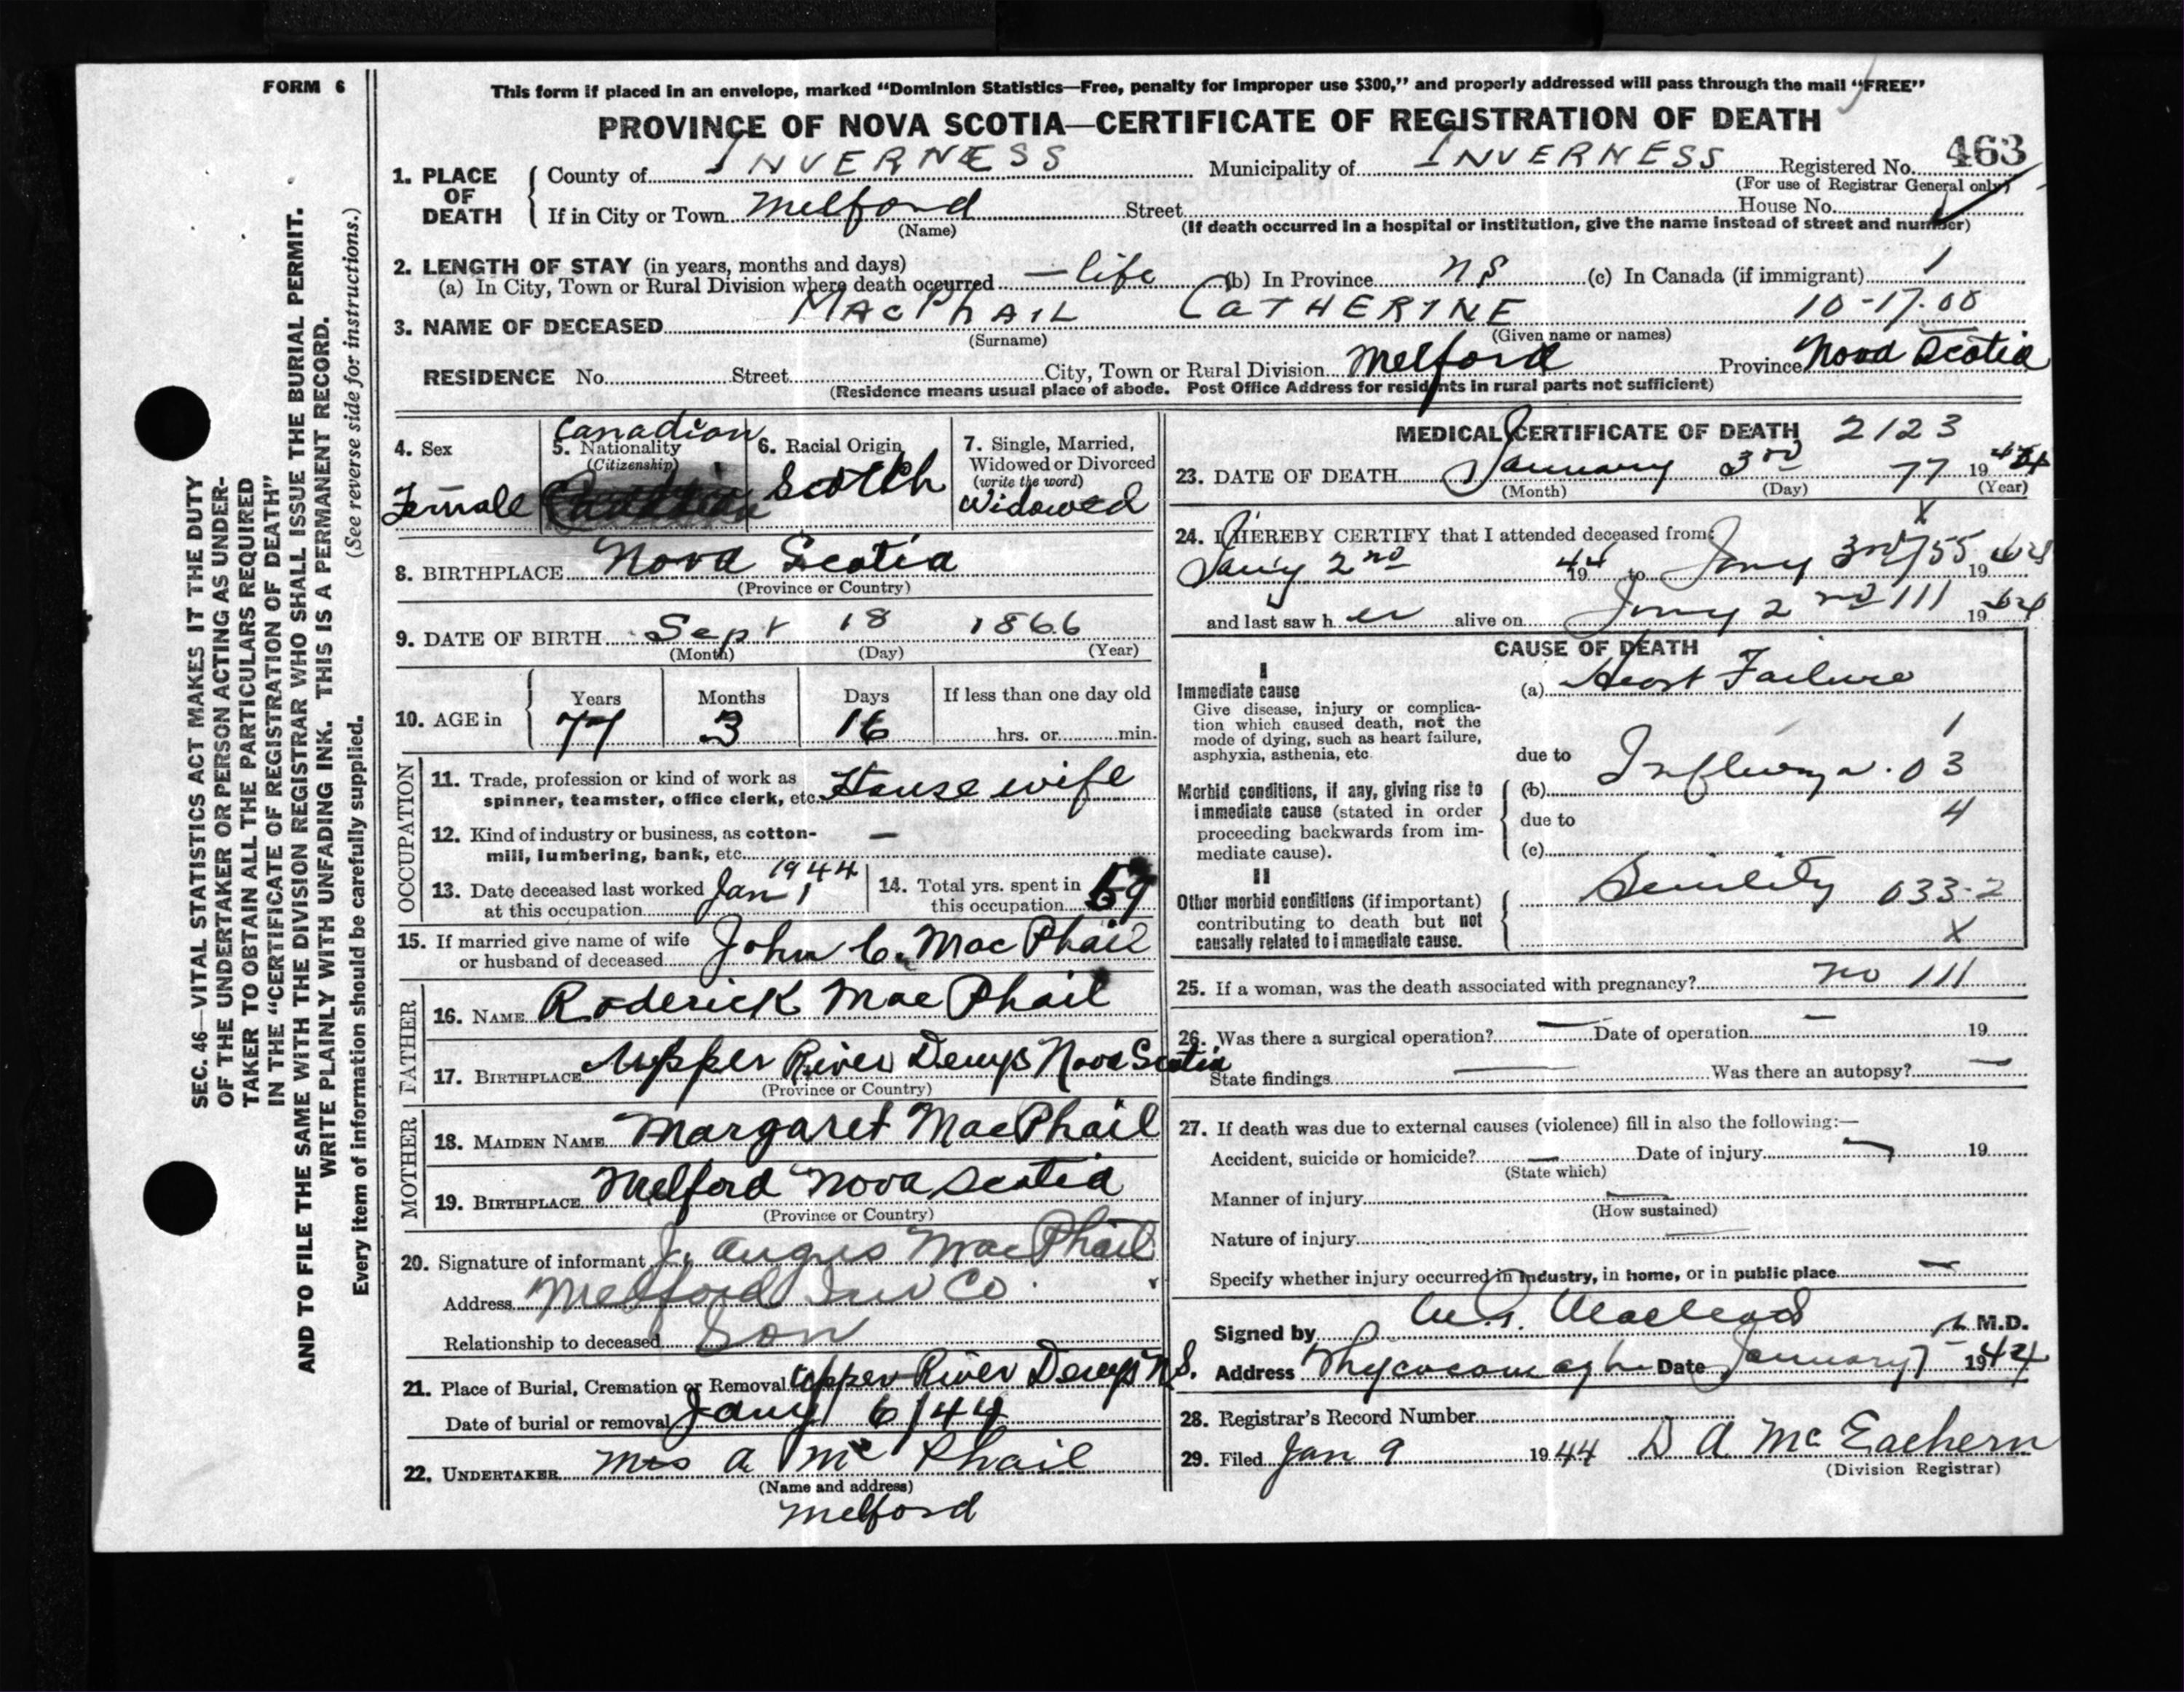 FORM 6
This form if placed in an envelope, marked "Dominion Statistics—Free, penalty for improper use $300," and properly addressed will pass through the mail "FREE"
PROVINCE OF NOVA SCOTIA—CERTIFICATE OF REGISTRATION OF DEATH
463
1. PLACE OF DEATH
County of INVERNESS Municipality of INVERNESS Registered No.
(For use of Registrar General only)
If in City or Town Melford Street House No.
(Name) (If death occurred in a hospital or institution, give the name instead of street and number)
2. LENGTH OF STAY (in years, months and days)
(a) In City, Town or Rural Division where death occurred — life (b) In Province NS (c) In Canada (if immigrant) 1
3. NAME OF DECEASED MacPhAIL CATHERINE 10-17.00
(Surname) (Given name or names)
RESIDENCE No. Street City, Town or Rural Division Melford Province Nova Scotia
(Residence means usual place of abode. Post Office Address for residents in rural parts not sufficient)
4. Sex
Female
Canadian
5. Nationality
(Citizenship)
6. Racial Origin
Scotch
7. Single, Married,
Widowed or Divorced
(write the word)
Widowed
8. BIRTHPLACE Nova Scotia
(Province or Country)
9. DATE OF BIRTH Sept 18 1866
(Month) (Day) (Year)
10. AGE in
Years Months Days If less than one day old
77 3 16 hrs. or min.
OCCUPATION
11. Trade, profession or kind of work as
spinner, teamster, office clerk, etc. House wife
12. Kind of industry or business, as cotton-
mill, lumbering, bank, etc. —
13. Date deceased last worked
at this occupation Jan 1 1944
14. Total yrs. spent in
this occupation 59
15. If married give name of wife
or husband of deceased John C. MacPhail
FATHER
16. NAME Roderick MacPhail
17. BIRTHPLACE Upper River Denys Nova Scotia
(Province or Country)
MOTHER
18. MAIDEN NAME Margaret MacPhail
19. BIRTHPLACE Melford Nova Scotia
(Province or Country)
20. Signature of informant J. Angus MacPhail
Address Melford Inv Co.
Relationship to deceased Son
21. Place of Burial, Cremation or Removal Upper River Denys N.S.
Date of burial or removal Jany 6/44
22. UNDERTAKER Mrs A Mc Phail
(Name and address)
Melford
MEDICAL CERTIFICATE OF DEATH 2123
23. DATE OF DEATH January 3rd 77 19 44
(Month) (Day) (Year)
24. I HEREBY CERTIFY that I attended deceased from:
X
Jany 2nd 19 44 to Jany 3rd 755 19 44
and last saw h er alive on Jany 2nd 111 19 44
CAUSE OF DEATH
I
Immediate cause
Give disease, injury or complica-
tion which caused death, not the
mode of dying, such as heart failure,
asphyxia, asthenia, etc.
(a) Heart Failure
1
due to
Morbid conditions, if any, giving rise to
immediate cause (stated in order
proceeding backwards from im-
mediate cause).
(b) Influenza. 03
due to 4
(c)
II
Other morbid conditions (if important)
contributing to death but not
causally related to immediate cause.
Senility 033-2
X
25. If a woman, was the death associated with pregnancy? no 111
26. Was there a surgical operation? — Date of operation — 19
State findings — Was there an autopsy? —
27. If death was due to external causes (violence) fill in also the following:—
Accident, suicide or homicide? — Date of injury — 19
(State which)
Manner of injury —
(How sustained)
Nature of injury —
Specify whether injury occurred in industry, in home, or in public place —
Signed by MacLeod M.D.
Address Whycocomagh Date January 7 1944
28. Registrar's Record Number
29. Filed Jan 9 1944 D A McEachern
(Division Registrar)
SEC. 46—VITAL STATISTICS ACT MAKES IT THE DUTY
OF THE UNDERTAKER OR PERSON ACTING AS UNDER-
TAKER TO OBTAIN ALL THE PARTICULARS REQUIRED
IN THE "CERTIFICATE OF REGISTRATION OF DEATH"
AND TO FILE THE SAME WITH THE DIVISION REGISTRAR WHO SHALL ISSUE THE BURIAL PERMIT.
WRITE PLAINLY WITH UNFADING INK. THIS IS A PERMANENT RECORD.
Every item of information should be carefully supplied. (See reverse side for instructions.)